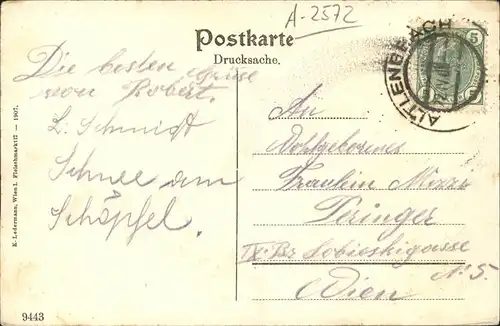 A-2572
Postkarte
Drucksache.
5
ALTLENGBACH
Die besten Grüsse
von Robert.
L. Schmidt
Schnee am
Schöpfel.
An
Wohlgeborenes
Fräulein Mizzi
Peringer
IX. Bz Sobieskigasse
N. 5.
Wien
K. Ledermann, Wien I. Fleischmarkt 12 — 1907.
9443